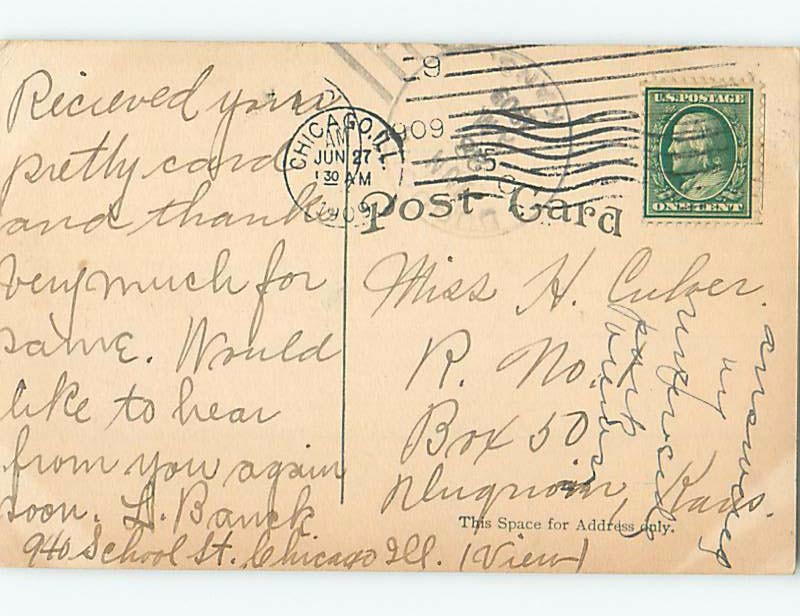 Recieved your
pretty card
and thanks
very much for
same. Would
like to hear
from you again
soon. L. Banck
940 School St. Chicago Ill. (View)
CHICAGO, ILL.
AM
JUN 27
1 30 AM
1909
9
909
U.S. POSTAGE
ONE CENT
Post Card
Miss H. Culver.
R. No.
Box 50
Duquoin, Kans.
This Space for Address only.
answered